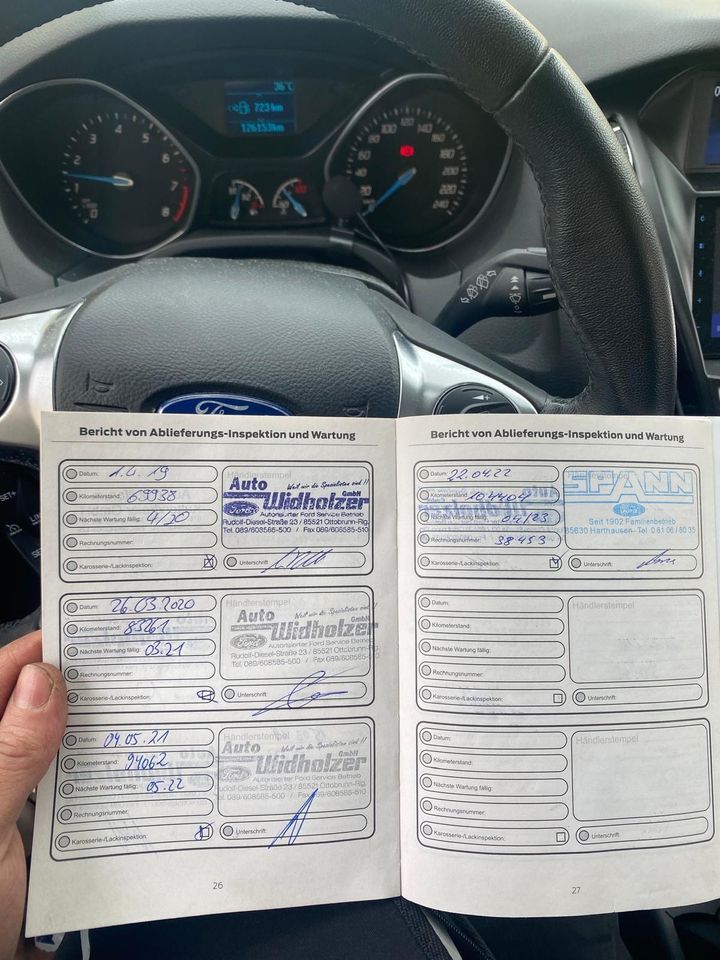 36°C
723 km
126153km
0 1 2 3 4 5 6 7 8
80 100 120 140 160 180 220 240
Ford
Bericht von Ablieferungs-Inspektion und Wartung
Datum: 1.4.19
Kilometerstand: 69938
Nächste Wartung fällig: 4/20
Rechnungsnummer:
Karosserie-/Lackinspektion:
Händlerstempel
Auto Weil wir die Spezialisten sind !!
Widholzer GmbH
Ford
Autorisierter Ford Service Betrieb
Rudolf-Diesel-Straße 23 / 85521 Ottobrunn-Rig.
Tel. 089/608585-500 / Fax 089/608585-510
Unterschrift:
Datum: 26.03.2020
Kilometerstand: 83261
Nächste Wartung fällig: 03.21
Rechnungsnummer:
Karosserie-/Lackinspektion:
Händlerstempel
Auto
Widholzer
Ford
Autorisierter Ford Service Betrieb
Rudolf-Diesel-Straße 23 / 85521 Ottobrunn-Rig.
Tel. 089/608585-500 / Fax 089/608585-510
Unterschrift:
Datum: 04.05.21
Kilometerstand: 94062
Nächste Wartung fällig: 05.22
Rechnungsnummer:
Karosserie-/Lackinspektion:
Händlerstempel
Auto Weil wir die Spezialisten sind !!
Widholzer GmbH
Ford
Autorisierter Ford Service Betrieb
Rudolf-Diesel-Straße 23 / 85521 Ottobrunn-Rig.
089/608585-500 / Fax 089/608585-510
Unterschrift:
26
Bericht von Ablieferungs-Inspektion und Wartung
Datum: 22.04.22
Kilometerstand: 104404
Nächste Wartung fällig: 04/23
Rechnungsnummer: 38453
Karosserie-/Lackinspektion:
SPANN
Ford
Seit 1902 Familienbetrieb
85630 Harthausen Tel. 0 81 06 / 80 35
Unterschrift:
Datum:
Kilometerstand:
Nächste Wartung fällig:
Rechnungsnummer:
Karosserie-/Lackinspektion:
Händlerstempel
Unterschrift:
Datum:
Kilometerstand:
Nächste Wartung fällig:
Rechnungsnummer:
Karosserie-/Lackinspektion:
Händlerstempel
Unterschrift:
27